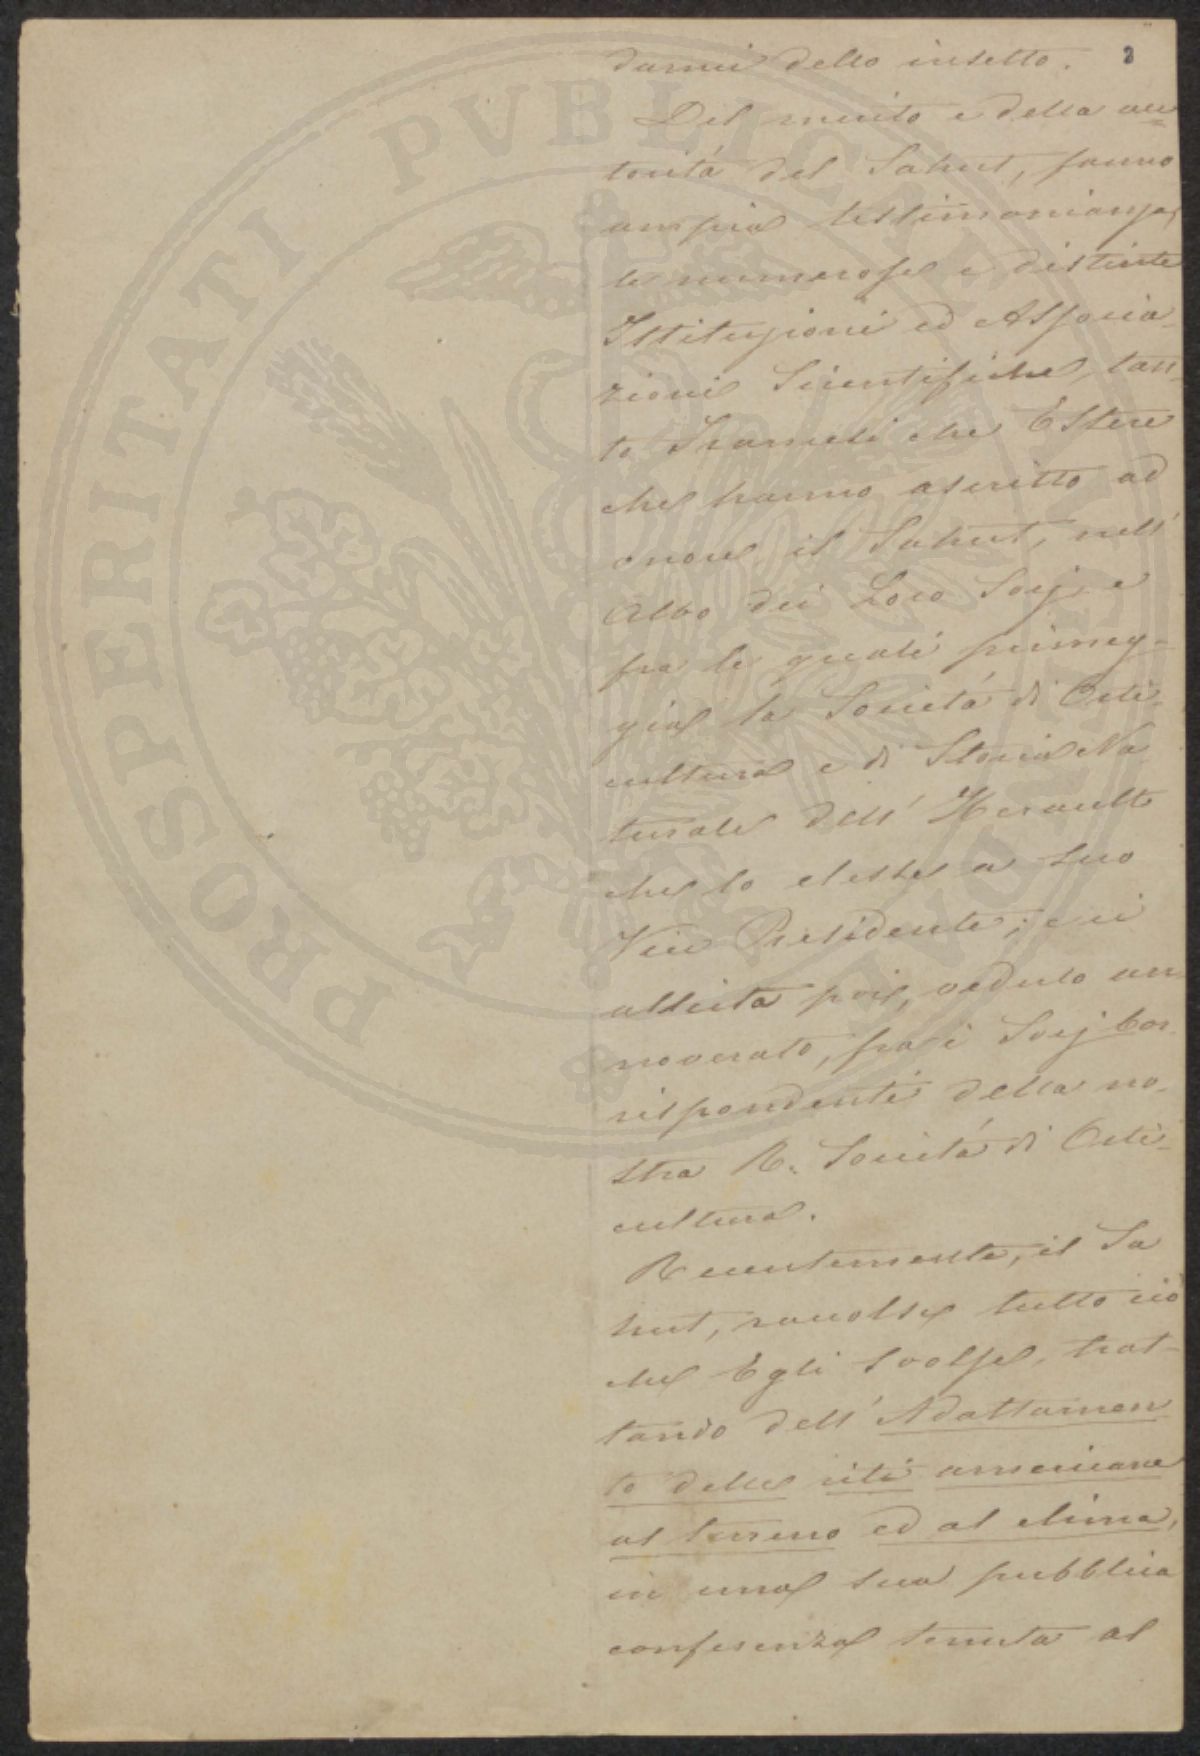 2
danni dello insetto.
Del merito e della au
torità del Sahut, fanno
ampia testimonianza,
le numerose e distinte
Istituzioni ed Associa-
zioni Scientifiche, tan-
to Francesi che Estere
che hanno ascritto ad
onore il Sahut, nell'
Albo dei Loro Socj, e
fra le quali primeg-
gia la Società di Orti-
cultura e di Storia Na
turale dell' Herault
che lo elesse a suo
Vice Presidente; e ci
allieta poi, vederlo an
noverato, fra i Socj Cor-
rispondenti della no-
stra R. Società di Orti-
cultura.
Recentemente, il Sa
hut, raccolse tutto ciò
che Egli svolse, trat-
tando dell' Adattamen
to delle viti americane
al terreno ed al clima,
in una sua pubblica
conferenza tenuta al
PROSPERITATI PVBLICAE